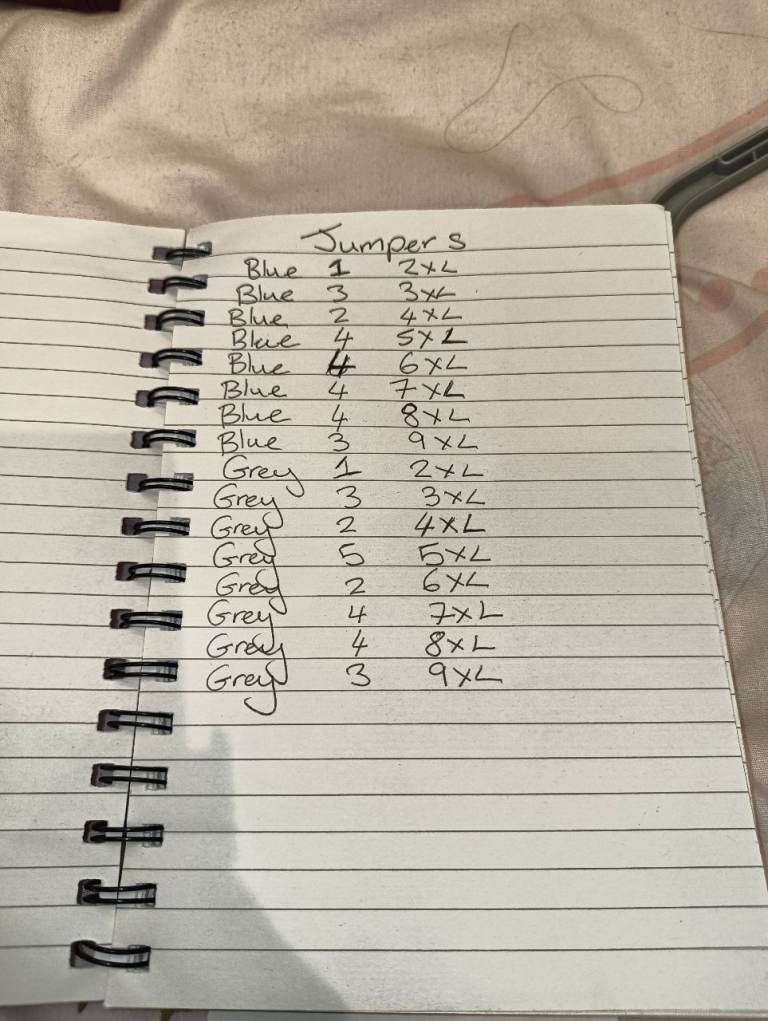 Jumpers
Blue 1 2XL
Blue 3 3XL
Blue 2 4XL
Blue 4 5XL
Blue 4 6XL
Blue 4 7XL
Blue 4 8XL
Blue 3 9XL
Grey 1 2XL
Grey 3 3XL
Grey 2 4XL
Grey 5 5XL
Grey 2 6XL
Grey 4 7XL
Grey 4 8XL
Grey 3 9XL